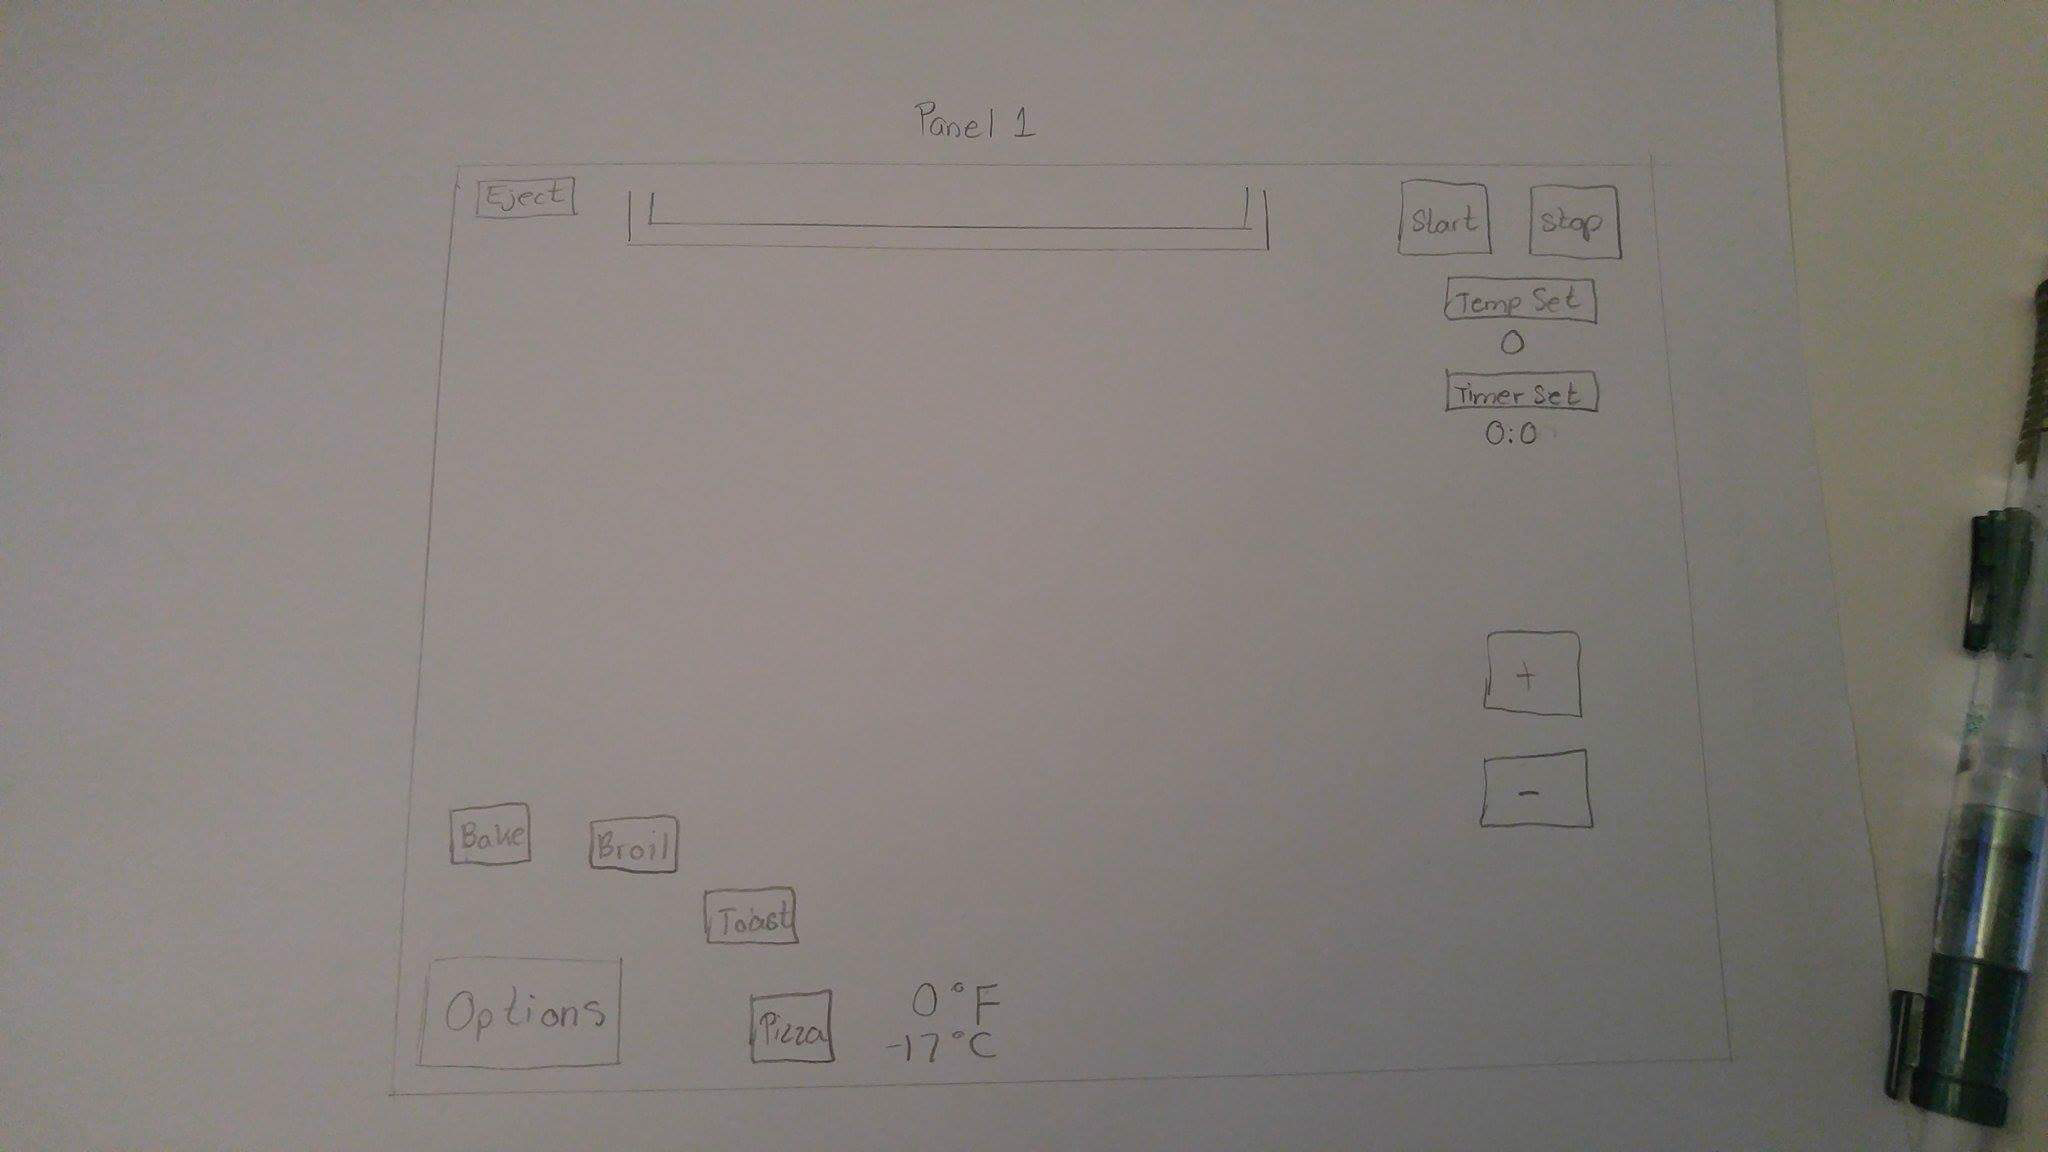 Panel 1
Eject
Start
Stop
Temp Set
0
Timer Set
0:0
+
-
Bake
Broil
Toast
Options
Pizza
0°F
-17°C